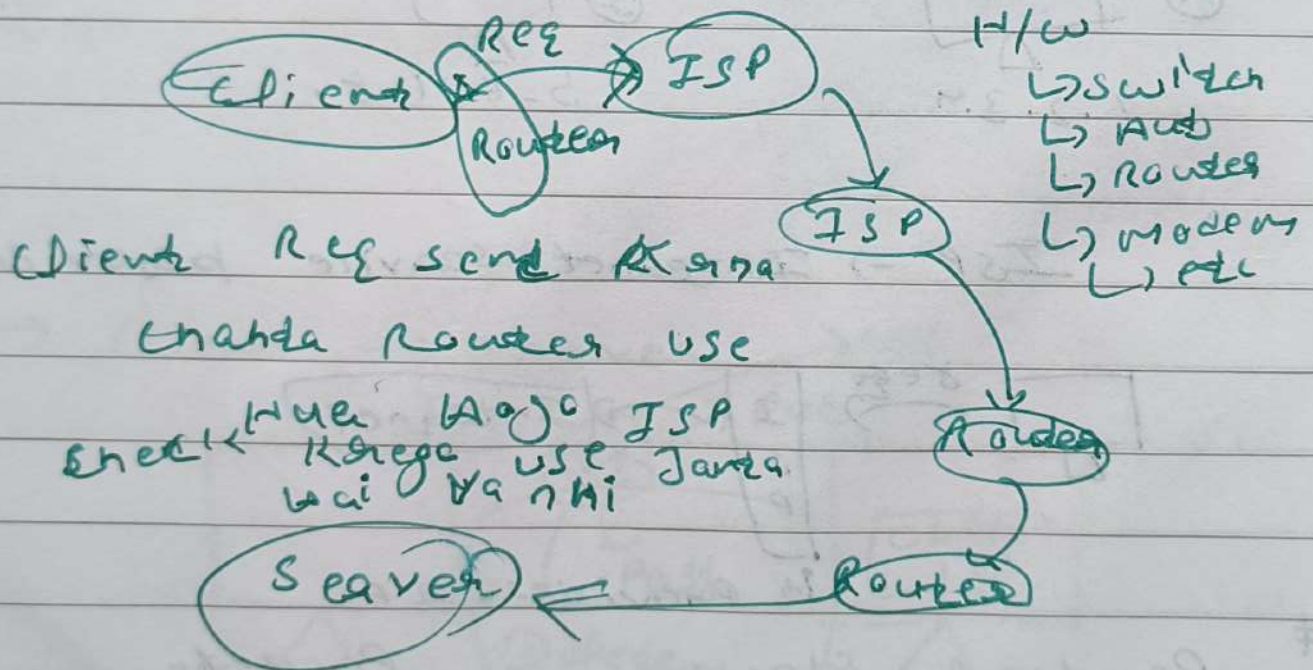 Req
Client
ISP
Router
H/W
↳ switch
↳ Hub
↳ Router
↳ modem
↳ etc
ISP
Client Req send Krna
Router use
Hua Hoga ISP
check Krega use Janta
hai ya nhi
Router
Router
Server